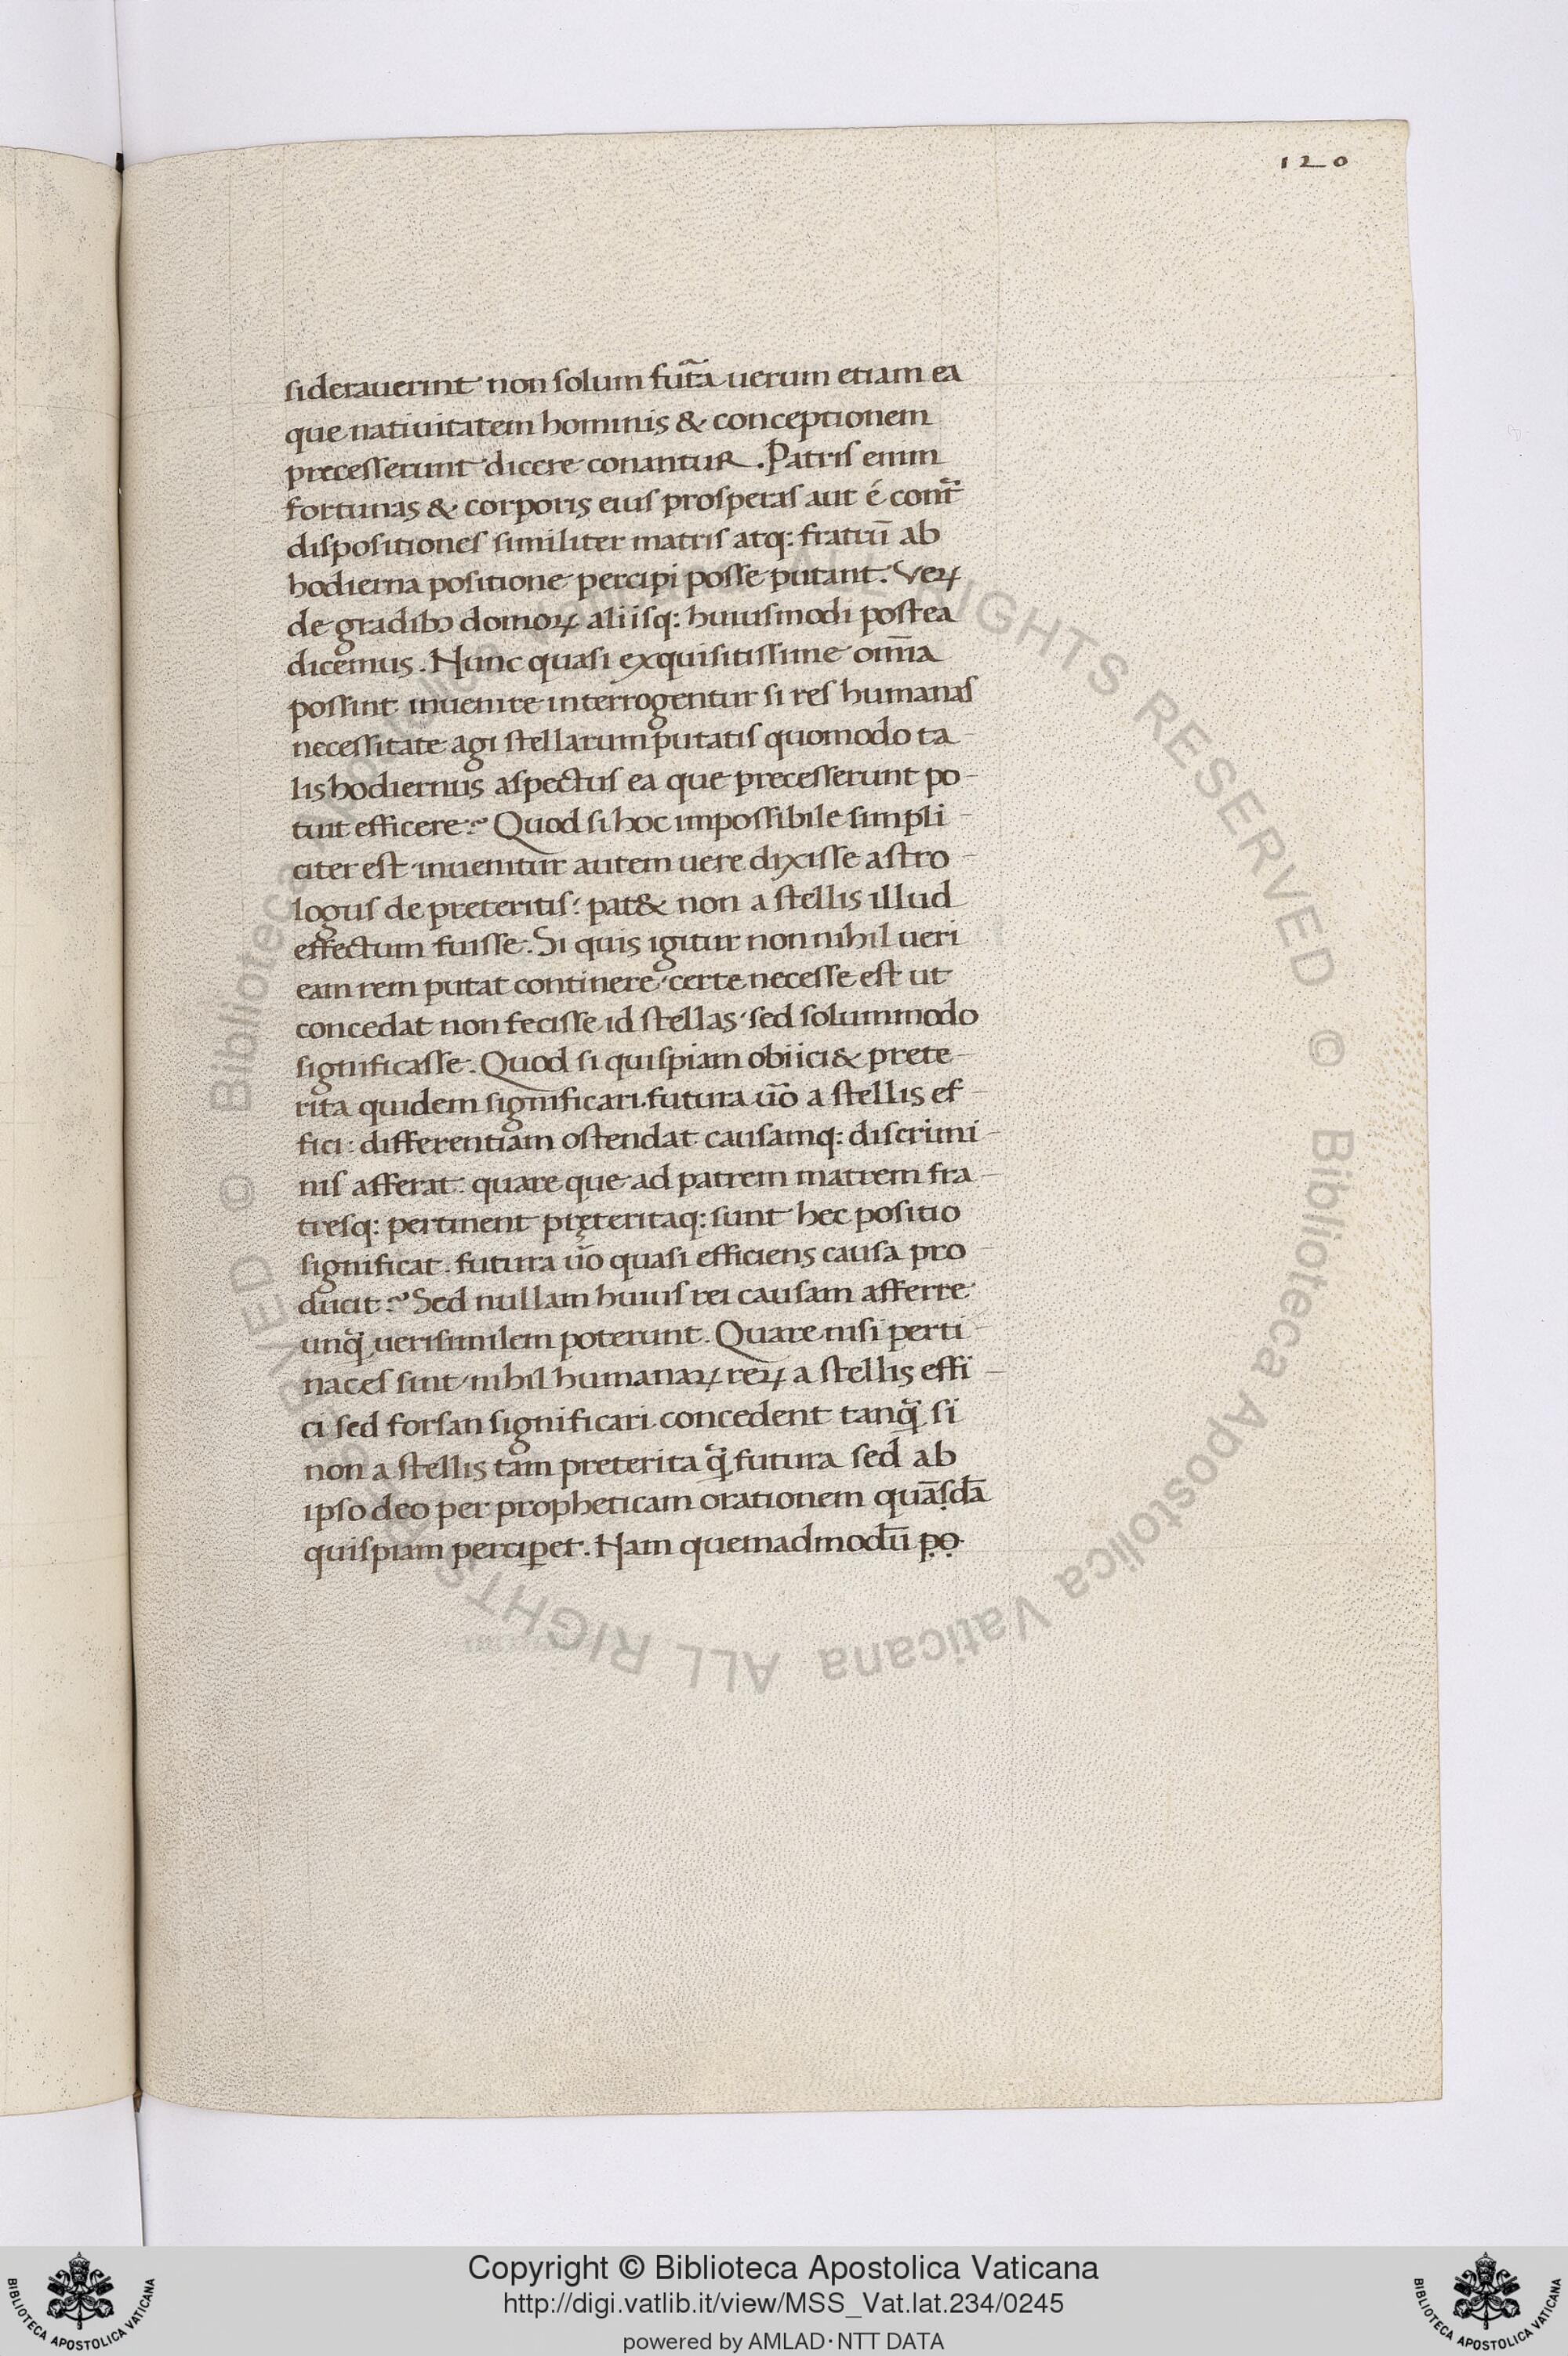 120
siderauerint non solum fut̃a uerum etiam ea
que natiuitatem hominis & conceptionem
precesserunt dicere conantur. Patris enim
fortunas & corporis eius prosperas aut é cont̃
dispositiones similiter matris atq: fratrū ab
hodierna positione percipi posse putant. Veꝝ
de gradibꝰ domoꝝ aliisq: huiusmodi postea
dicemus. Nunc quasi exquisitissime om̄ia
possint inuenire interrogentur si res humanas
necessitate agi stellarum putatis quomodo ta-
lis hodiernus aspectus ea que precesserunt po-
tuit efficere? Quod si hoc impossibile simpli-
citer est inuenitur autem uere dixisse astro-
logus de preteritis: pat& non a stellis illud
effectum fuisse. Si quis igitur non nihil ueri
eam rem putat continere certe necesse est ut
concedat non fecisse id stellas sed solummodo
significasse. Quod si quispiam obiici& prete-
rita quidem significari. futura ūo a stellis ef-
fici: differentiam ostendat causamq: discrimi-
nis afferat: quare que ad patrem matrem fra-
tresq: pertinent pręteritaq: sunt hec positio
significat. futura ūo quasi efficiens causa pro-
ducit? Sed nullam huius rei causam afferre
unq̃ uerisimilem poterunt. Quare nisi perti-
naces sint nihil humanaꝝ reꝝ a stellis effi-
ci sed forsan significari concedent tanq̃ si
non a stellis tam preterita q̃ futura sed ab
ipso deo per propheticam orationem quāsdā
quispiam perciperet. Nam quemadmodū po
Copyright © Biblioteca Apostolica Vaticana
http://digi.vatlib.it/view/MSS_Vat.lat.234/0245
powered by AMLAD·NTT DATA
BIBLIOTECA APOSTOLICA VATICANA
BIBLIOTECA APOSTOLICA VATICANA
© Biblioteca Apostolica Vaticana ALL RIGHTS RESERVED © Biblioteca Apostolica Vaticana ALL RIGHTS RESERVED